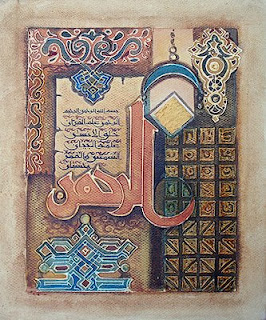 بسم الله الرحمن الرحيم
الرحمن علم القران
خلق الانسن
علمه البيان
الشمس والقمر
بحسبان
الرحمن